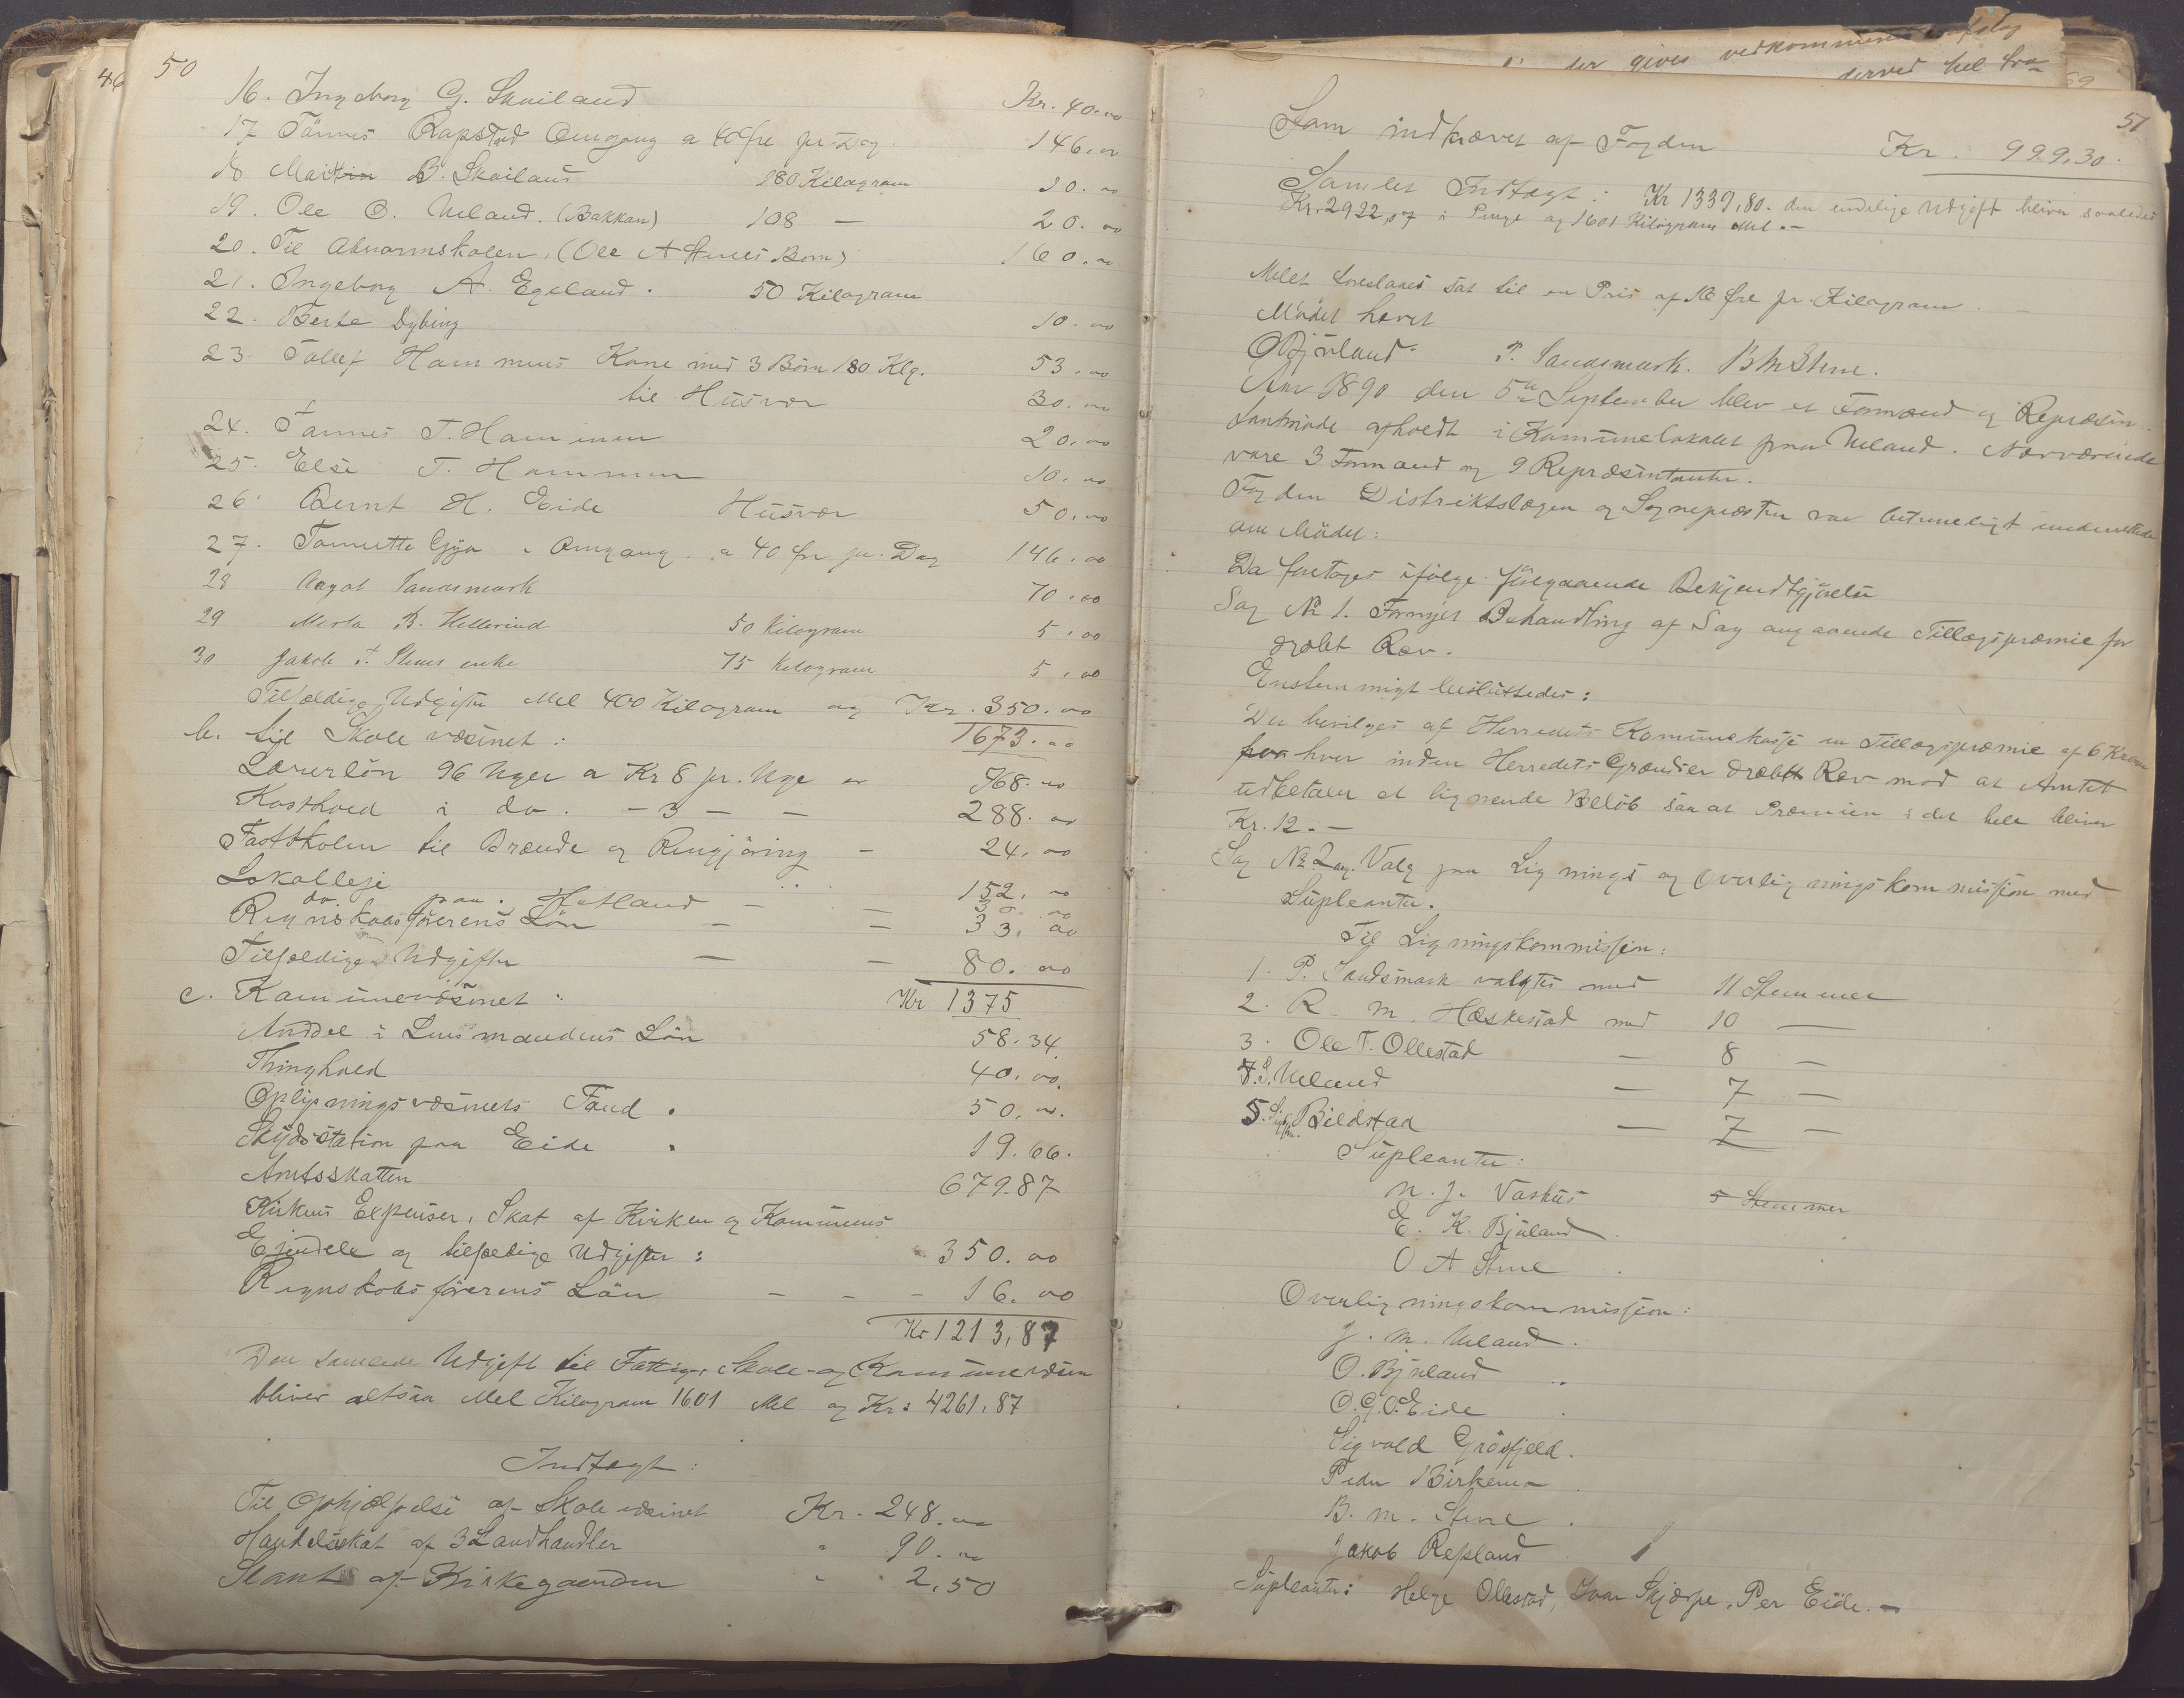 46
50
16. Ingeborg G. Skailand Kr. 40.00
17 Tönnes Rapstad Omgang a 40 Öre pr. Dag. 146.00
18 Martin B. Skailand 180 Kilogram 10.00
19. Ole O. Ueland. (Bakkan) 108 — 20.00
20. Til Abnormskolen. (Ole A Stenes Børn) 160.00
21. Ingeborg A. Egeland. 50 Kilogram
22. Berte Dybing 10.00
23. Tollef Hammens Kone med 3 Börn 180 Klg. 53.00
til Husvær 30.00
24. Tönnes T. Hammen 20.00
25. Else T. Hammen 10.00
26. Bernt H. Eide Husvær 50.00
27. Tomette Gya Omgang. a 40 Öre pr. Dag 146.00
28 Aagot Sandsmark 70.00
29 Marta B. Hellerind 50 Kilogram 5.00
30 Jakob T. Stenes enke 75 Kilogram 5.00
Tilfældige Udgifter Mel 400 Kilogram og Kr. 350.00
1673.00
b. til Skolevæsenet:
Lærerlön 96 Uger a Kr 8 pr. Uge er 768.00
Kosthold i do. - 3 — — 288.00
Fastskolen til Brænde og Rengjöring — 24.00
Lokalleje 152.00
do. paa. Hetland — — 30.00
Regnskabsförerens Lön — — 33.00
Tilfældige Udgifter — — 80.00
c. Kommunevæsenet: Kr 1375
Anddel i Lensmandens Lön 58.34
Thinghold 40.00.
Oplysningsvæsenets Fond. 50.00.
Skydsstation paa Eide 19.66.
Amtsskatten 679.87
Kirkens Expenser, Skat af Kirken og Kommunens
Ejendele og tilfældige Udgifter: 350.00
Regnskabsförerens Lön — — — 16.00
Kr 1213,87
Den samlede Udgift til Fattig-, Skole- og Kommunevæsen
bliver altsaa Mel Kilogram 1601 Mel og Kr: 4261.87
Indtægt:
Til Ophjælpelse af Skolevæsenet Kr. 248.00
Handelsskat af 3 Landhandler " 90.00
af Kirkegaarden " 2,50
der gives vedkommende
51
Som indkrævet af Fogden Kr. 999,30.
Samlet Indtægt: Kr 1339,80. den endelige Udgift bliver saaledes
Kr. 2922,07 i Penge og 1601 Kilogram Mel. —
Melet foreslaaes sat til en Pris af 16 Öre pr. Kilogram.
Mödet hævet
O Bjuland. P. Sandsmark. B M Stene.
Aar 1890 den 5te September blev et Formænd og Repræsen-
tantmöde afholdt i Kommunelokalet paa Ueland. Nærværende
vare 3 Formænd og 9 Repræsentanter.
Fogden Distriktslægen og Sognepresten var betimeligt underrettede
om Mödet:
Da foretoges ifölge forlgaaende Bekjendtgjörelse
Sag No 1. Fornyet Behandling af Sag angaaende Tillægspræmie for
dræbt Ræv.
Enstemmigt besluttedes:
Der bevilges af Herredets Kommunekasse en Tillægspræmie af 6 Kroner
for hver inden Herredets Grændser dræbtt Ræv mod at Amtet
udbetaler et lignende Belöb saa at Præmien i det hele bliver
Kr. 12. —
Sag No 2. Valg paa Lignings og Overligningskommission med
Supleanter.
Til Ligningskommission:
1. P. Sandsmark valgtes med 11 Stemmer
2. R. M. Hæskestad med 10 —
3. Ole T. Ollestad — 8 —
S. Ueland — 7 —
5. Bildstad — 7 —
Supleanter:
N. J. Vashus 5 Stemmer
E. K. Bjuland.
O A Stene.
Overligningskommission:
J. M. Ueland.
O. Bjuland
O. G. O. Eide
Sigvald Grösfjeld.
Peder Birkem
B. M. Stene.
Jakob Repsland.
Supleanter: Helge Ollestad, Ivar Skjærpe, Per Eide. —